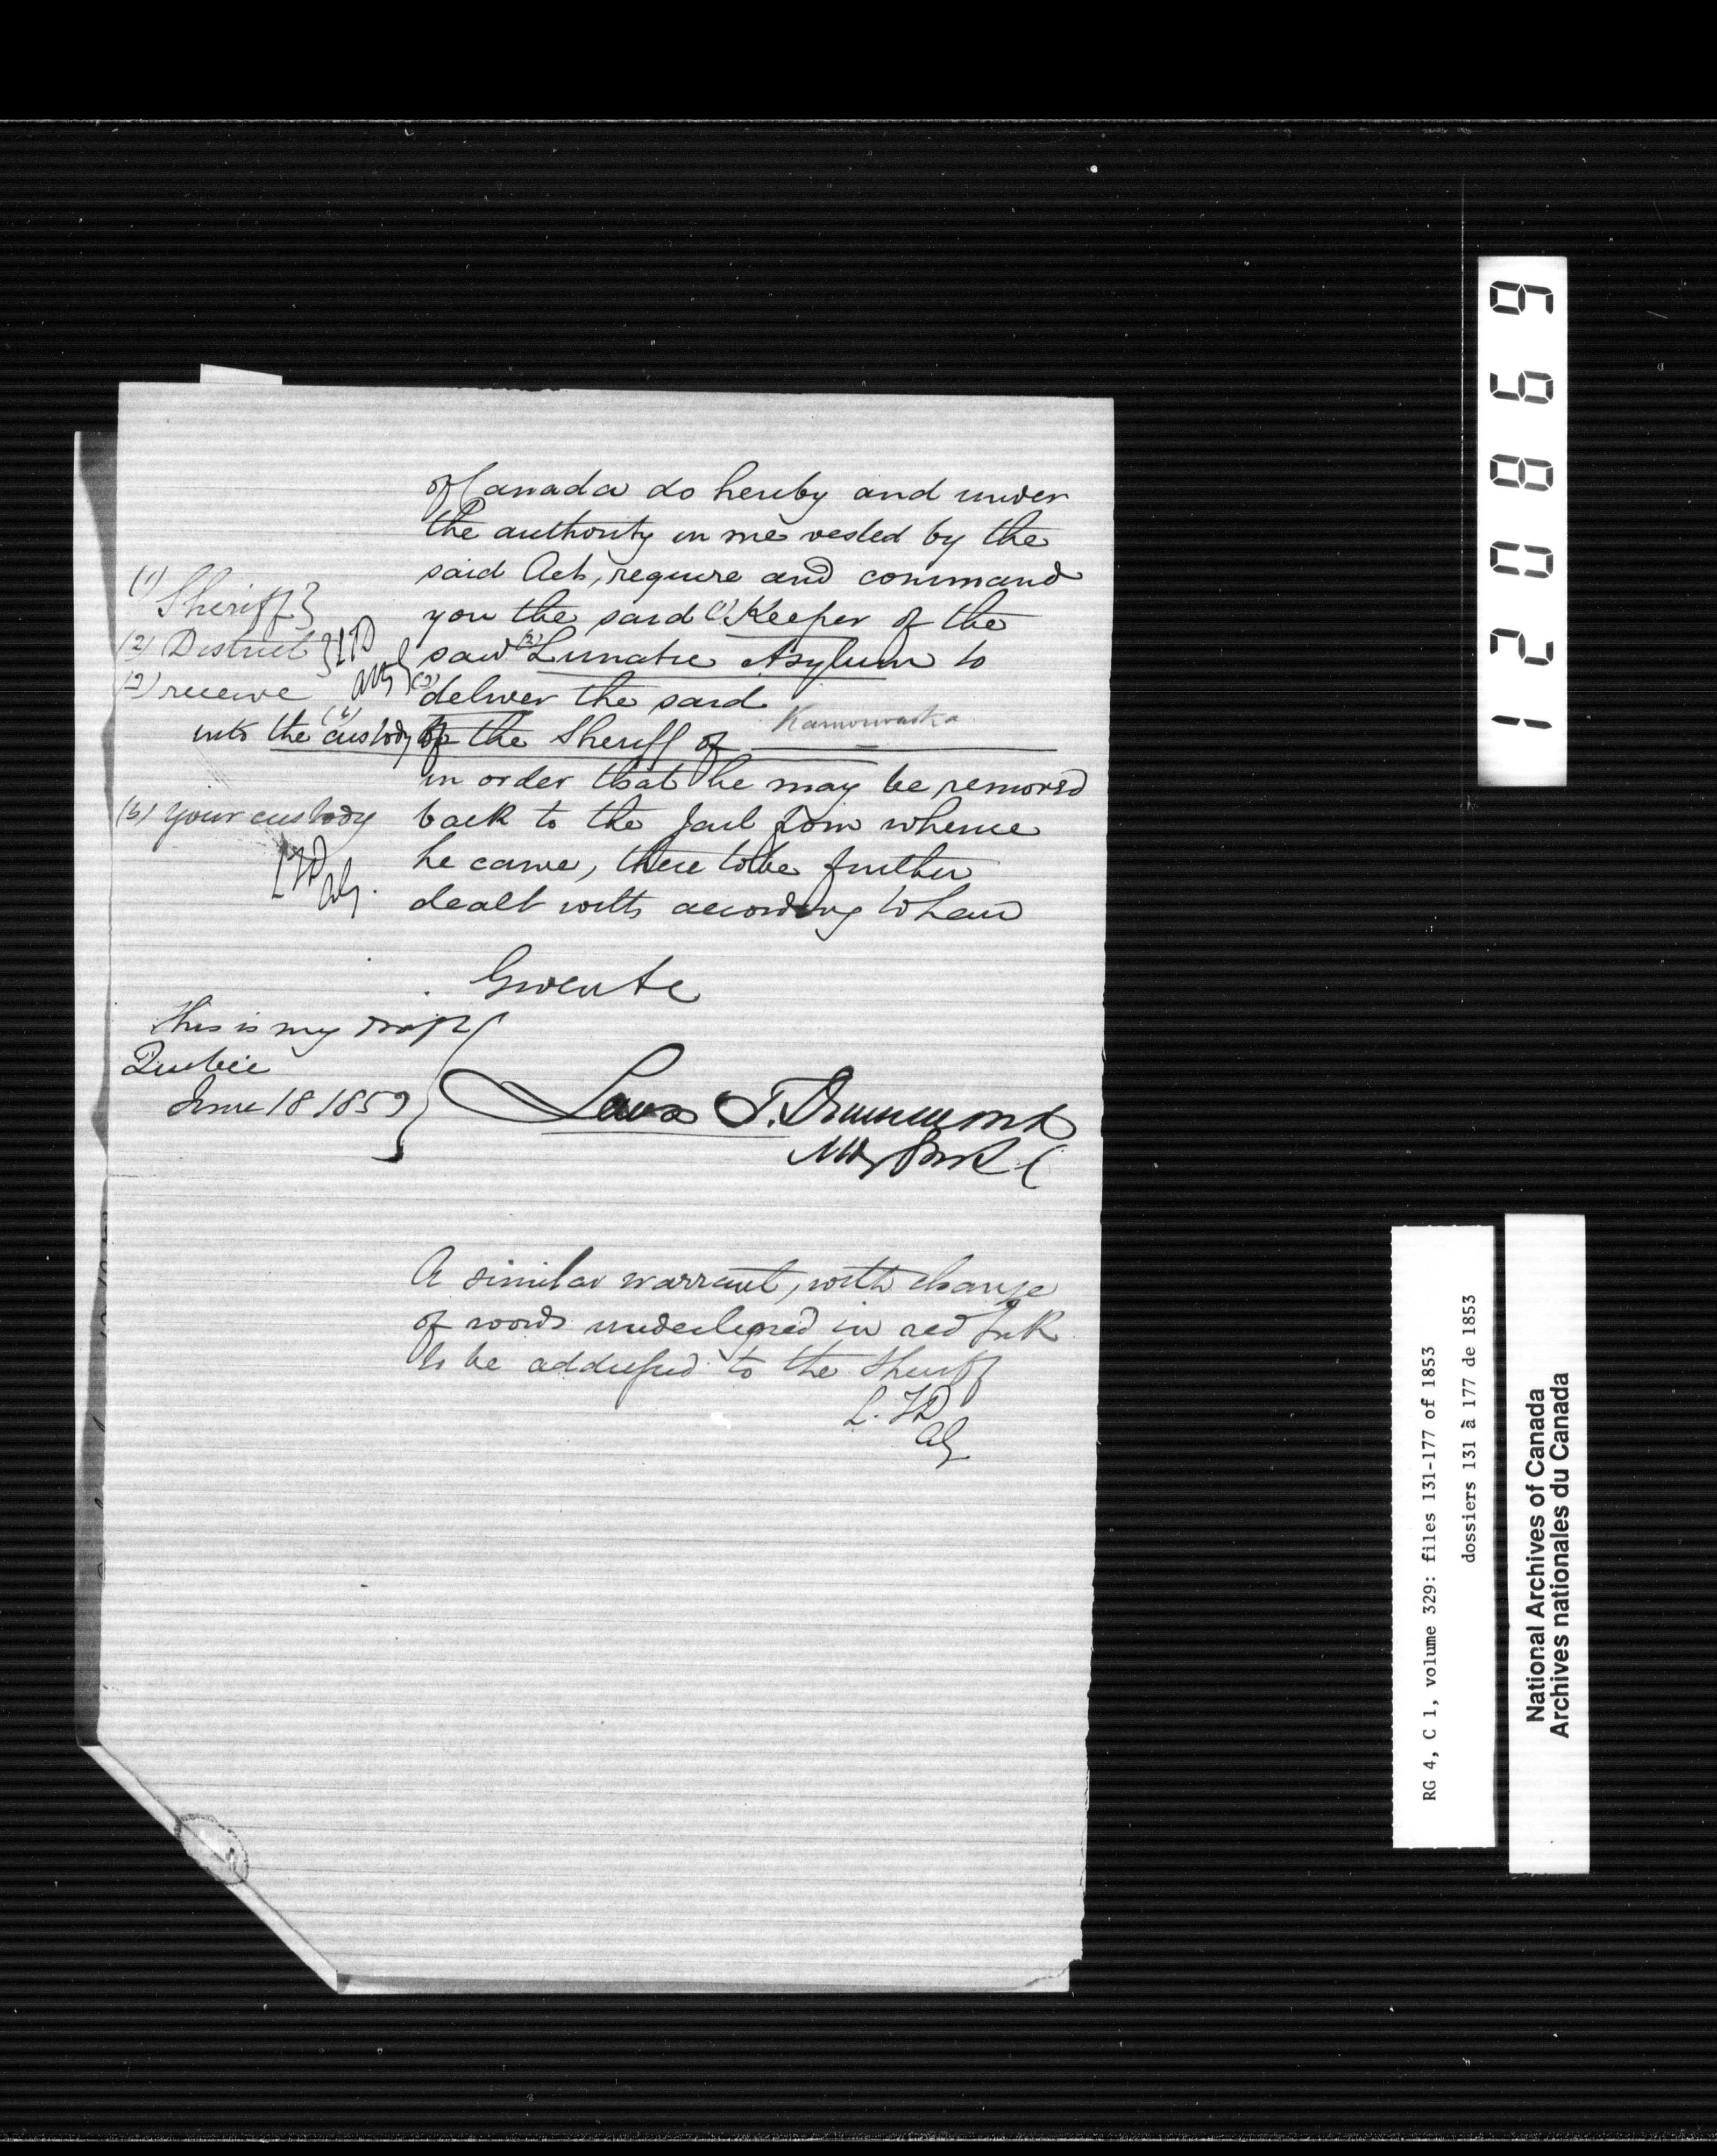 of Canada do hereby and under
the authority in me vested by the
said Act, require and command
(1) Sheriff }
you the said (1) Keeper of the
(2) District } LTD
said (2) Lunatic Asylum to
(3) receive
(3) deliver the said
into the custody of the Sheriff of Kamouraska
in order that he may be removed
(4) your custody
back to the Jail from whence
LTD
AG.
he came, there to be further
dealt with according to Law
Given &c
This is my draft
Quebec
June 18 1853
Lewis T. Drummond
Atty Genl
A similar warrant, with change
of words underlined in red Ink
to be addressed to the Sheriff
L. TD
AG
120869
RG 4, C 1, volume 329: files 131-177 of 1853
dossiers 131 à 177 de 1853
National Archives of Canada
Archives nationales du Canada